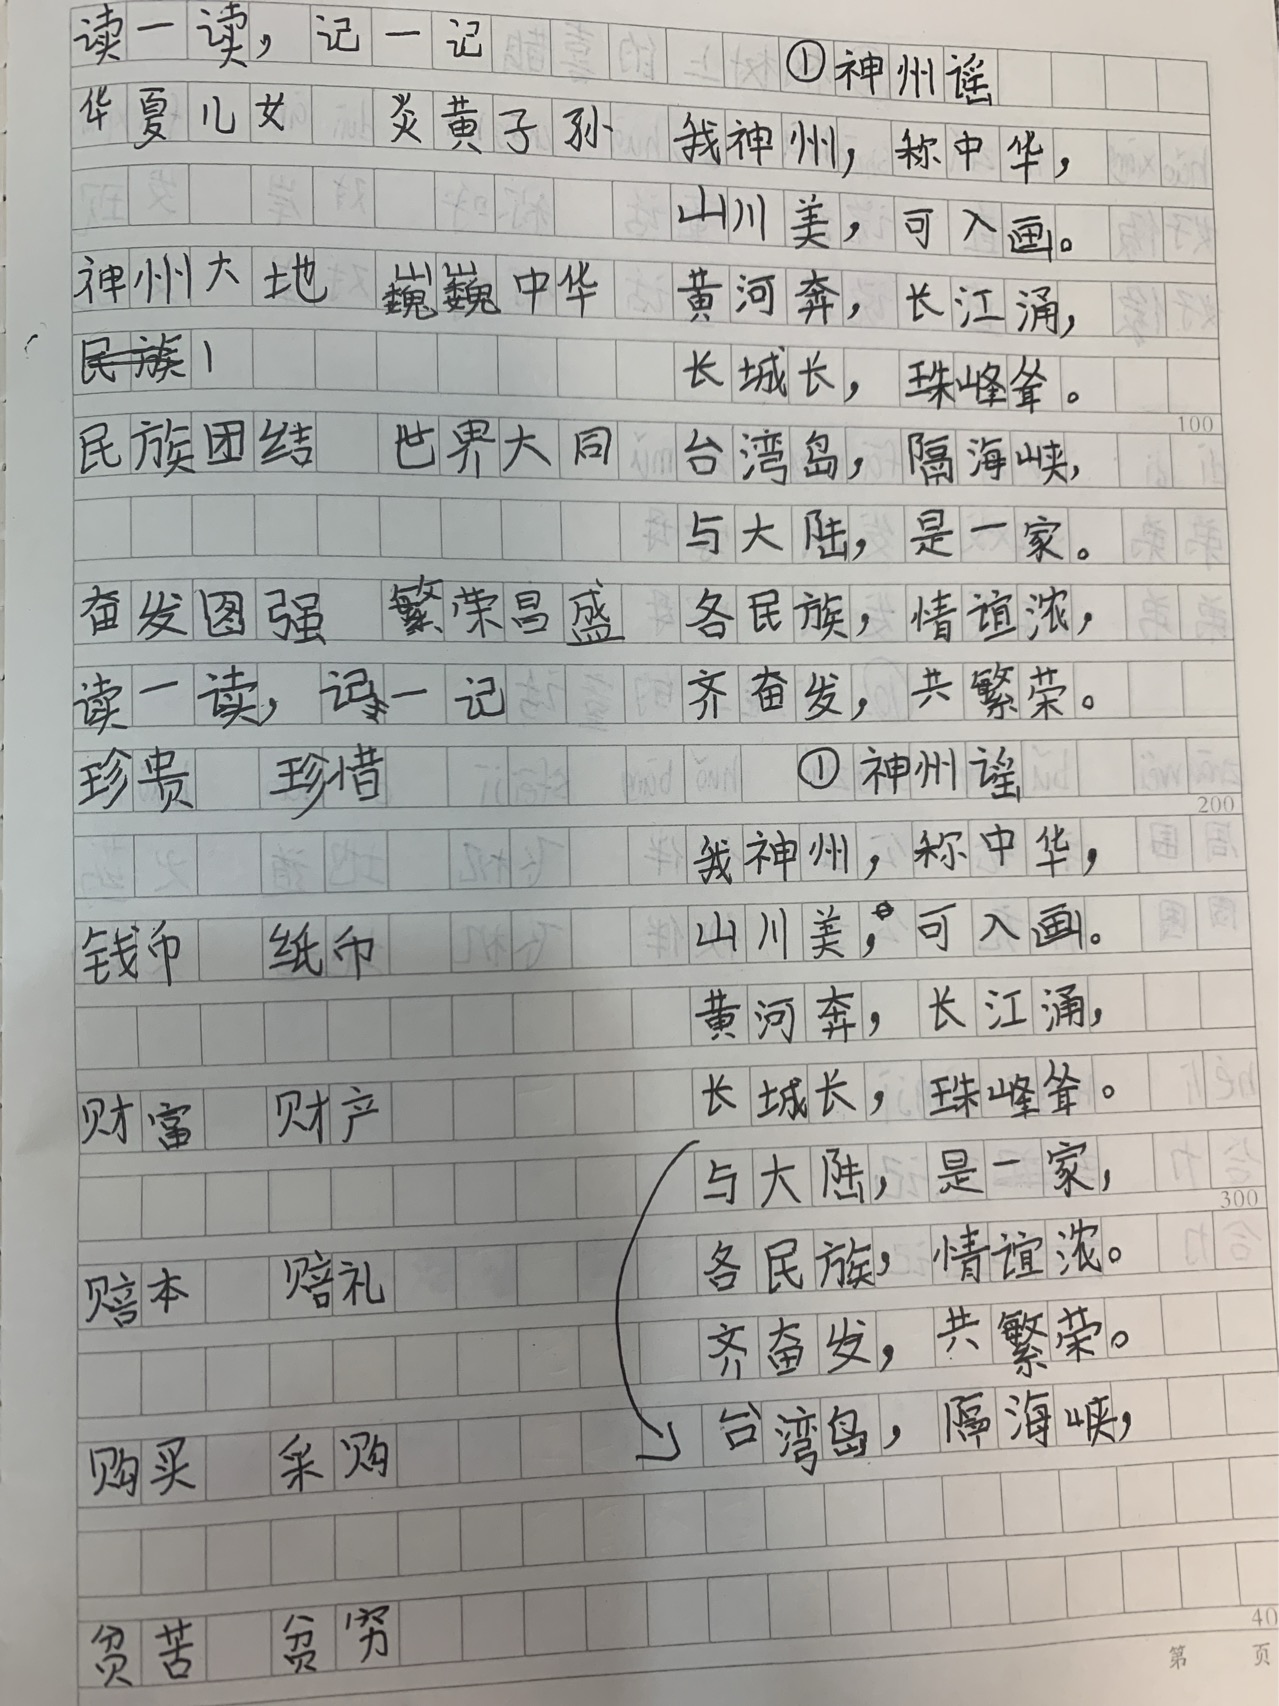 读一读，记一记
华夏儿女 炎黄子孙
神州大地 巍巍中华
民族
民族团结 世界大同
奋发图强 繁荣昌盛
读一读，记一记
珍贵 珍惜
钱币 纸币
财富 财产
赔本 赔礼
购买 采购
贫苦 贫穷
①神州谣
我神州，称中华，
山川美，可入画。
黄河奔，长江涌，
长城长，珠峰耸。
台湾岛，隔海峡，
与大陆，是一家。
各民族，情谊浓，
齐奋发，共繁荣。
①神州谣
我神州，称中华，
山川美，可入画。
黄河奔，长江涌，
长城长，珠峰耸。
与大陆，是一家，
各民族，情谊浓。
齐奋发，共繁荣。
台湾岛，隔海峡，
100
200
300
40
第 页